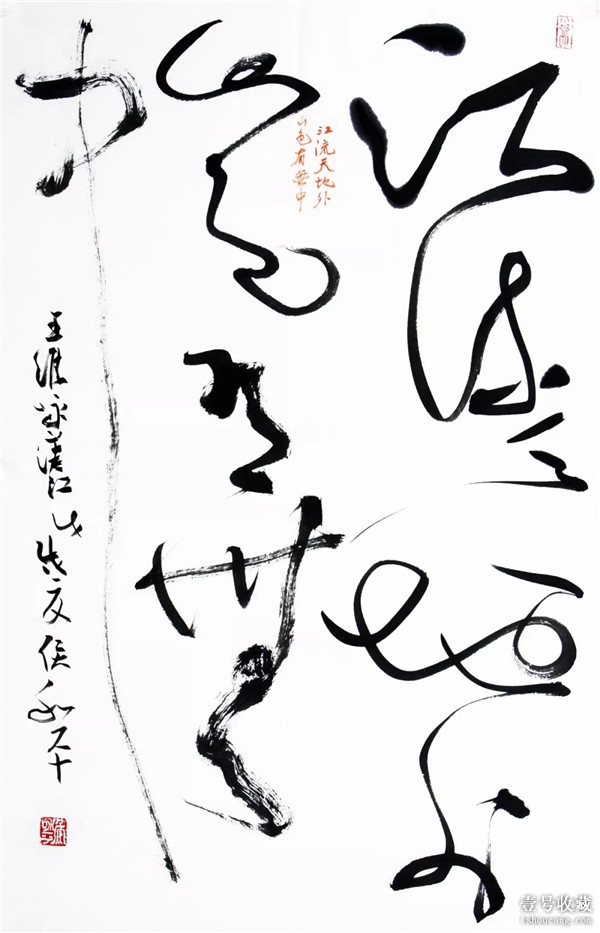 江流天地外
山色有無
中
江流天地外
山色有無中
王維詠漢江戊戌夏
壹号收藏
1shoucang.com